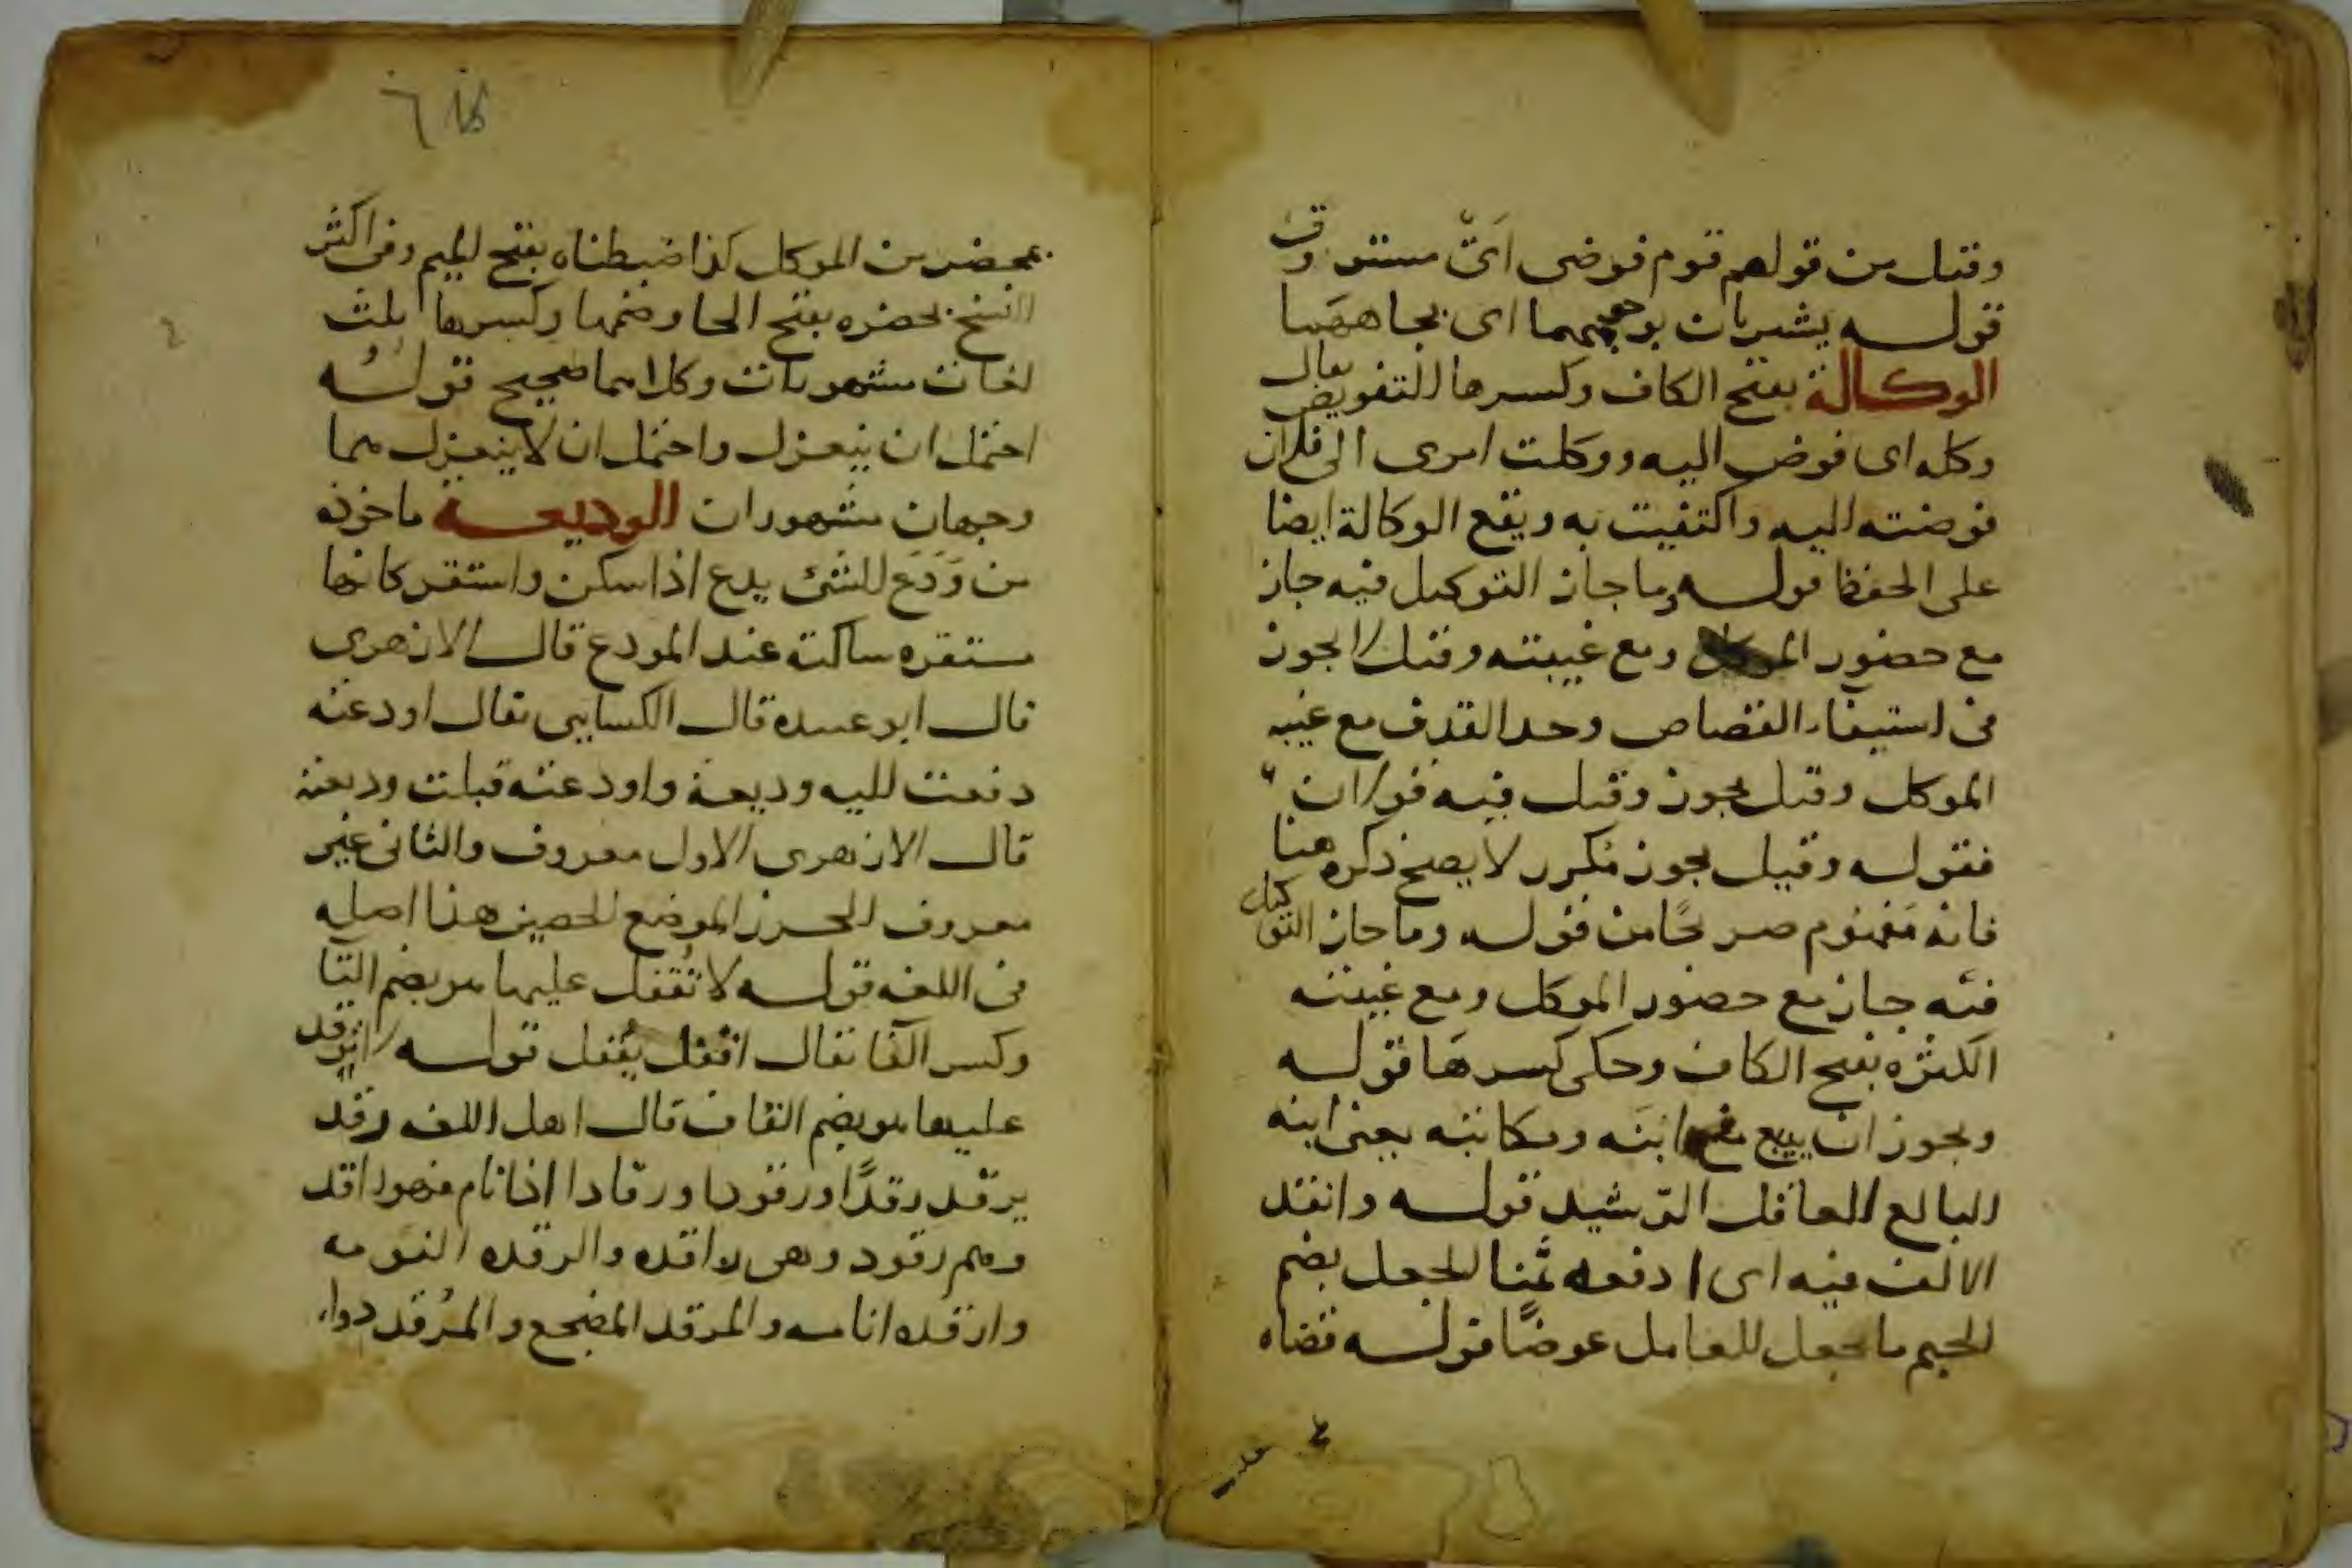 وقيل من قولهم قوم فوضى اي مستوون
قوله يشيران بوجههما اى بجاههما
الوكالة بفتح الكاف وكسرها التفويض يقال
وكله اى فوض اليه ووكلت امرى الى فلان
فوضته اليه واكتفيت به ويقع الوكالة ايضا
على الحفظ قوله وما جاز التوكيل فيه جاز
مع حضور الموكل ومع غيبته وقيل لا يجوز
فى استيفاء القصاص وحد القذف مع غيبه
الموكل وقيل يجوز وقيل فيه قولان
فقوله وقيل يجوز مكرر لا يصح ذكره هنا
فانه مفهوم صريحًا من قوله وما جاز التوكيل
فيه جاز مع حضور الموكل ومع غيبته
الكثره بفتح الكاف وحكى كسرها قوله
ويجوز ان يبيع من ابنه ومكاتبه يعنى ابنه
البالغ العاقل الرشيد قوله وانقد
الالف فيه اى ادفعه ثمنا الجعل بضم
الجيم ما يجعل للعامل عوضًا قوله قضاه
بمحضر من الموكل كذا ضبطناه بفتح الميم وفى اكثر
النسخ بحضره بفتح الحا وضمها وكسرها ثلث
لغات مشهورات وكلاهما صحيح قوله
احتمل ان ينعزل واحتمل ان لا ينعزل هما
وجهان مشهوران الوديعة ماخوذه
من وَدَعَ الشئ يدع اذا سكن واستقر كانها
مستقره ساكنة عند المودع قال الازهرى
قال ابو عبيده قال الكسايى يقال اودعته
دفعت اليه وديعة واودعته قبلت وديعته
قال الازهرى الاول معروف والثانى غير
معروف الحرز الموضع الحصين هذا اصله
فى اللغه قوله لا تُقفل عليها هو بضم التا
وكسر الفا يقال اقفل يُقفل قوله لا يرقد
عليها هو بضم القاف قال اهل اللغه رقد
يرقد رقدًا ورقودا ورقادا اذا نام فهو راقد
وهم رقود وهى راقده والرقده النومه
وارقده انامه والمرقد المضجع والمُرقد دواء